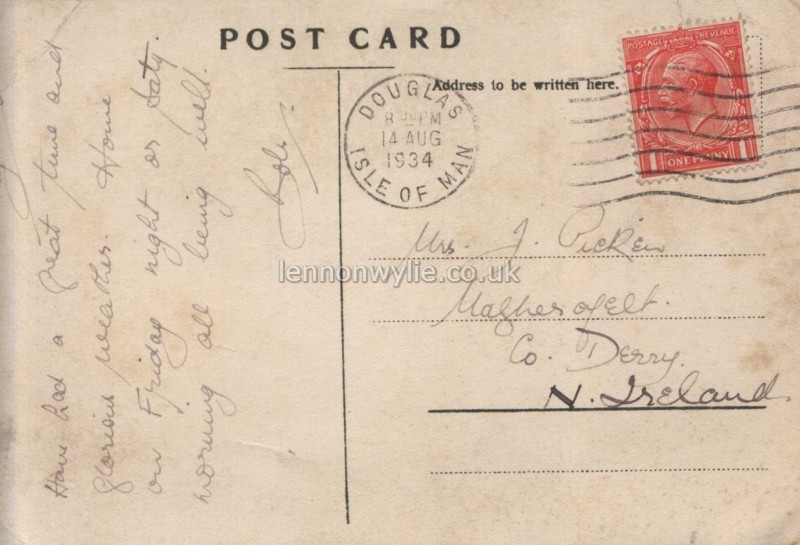 POST CARD
Address to be written here.
DOUGLAS
8 PM
14 AUG
1934
ISLE OF MAN
POSTAGE REVENUE
1 1
ONE PENNY
Have had a great time and
glorious weather. Home
on Friday night or Saty.
morning all being well.
Mrs. J. Picken
Magherafelt.
Co. Derry.
N. Ireland
lennonwylie.co.uk